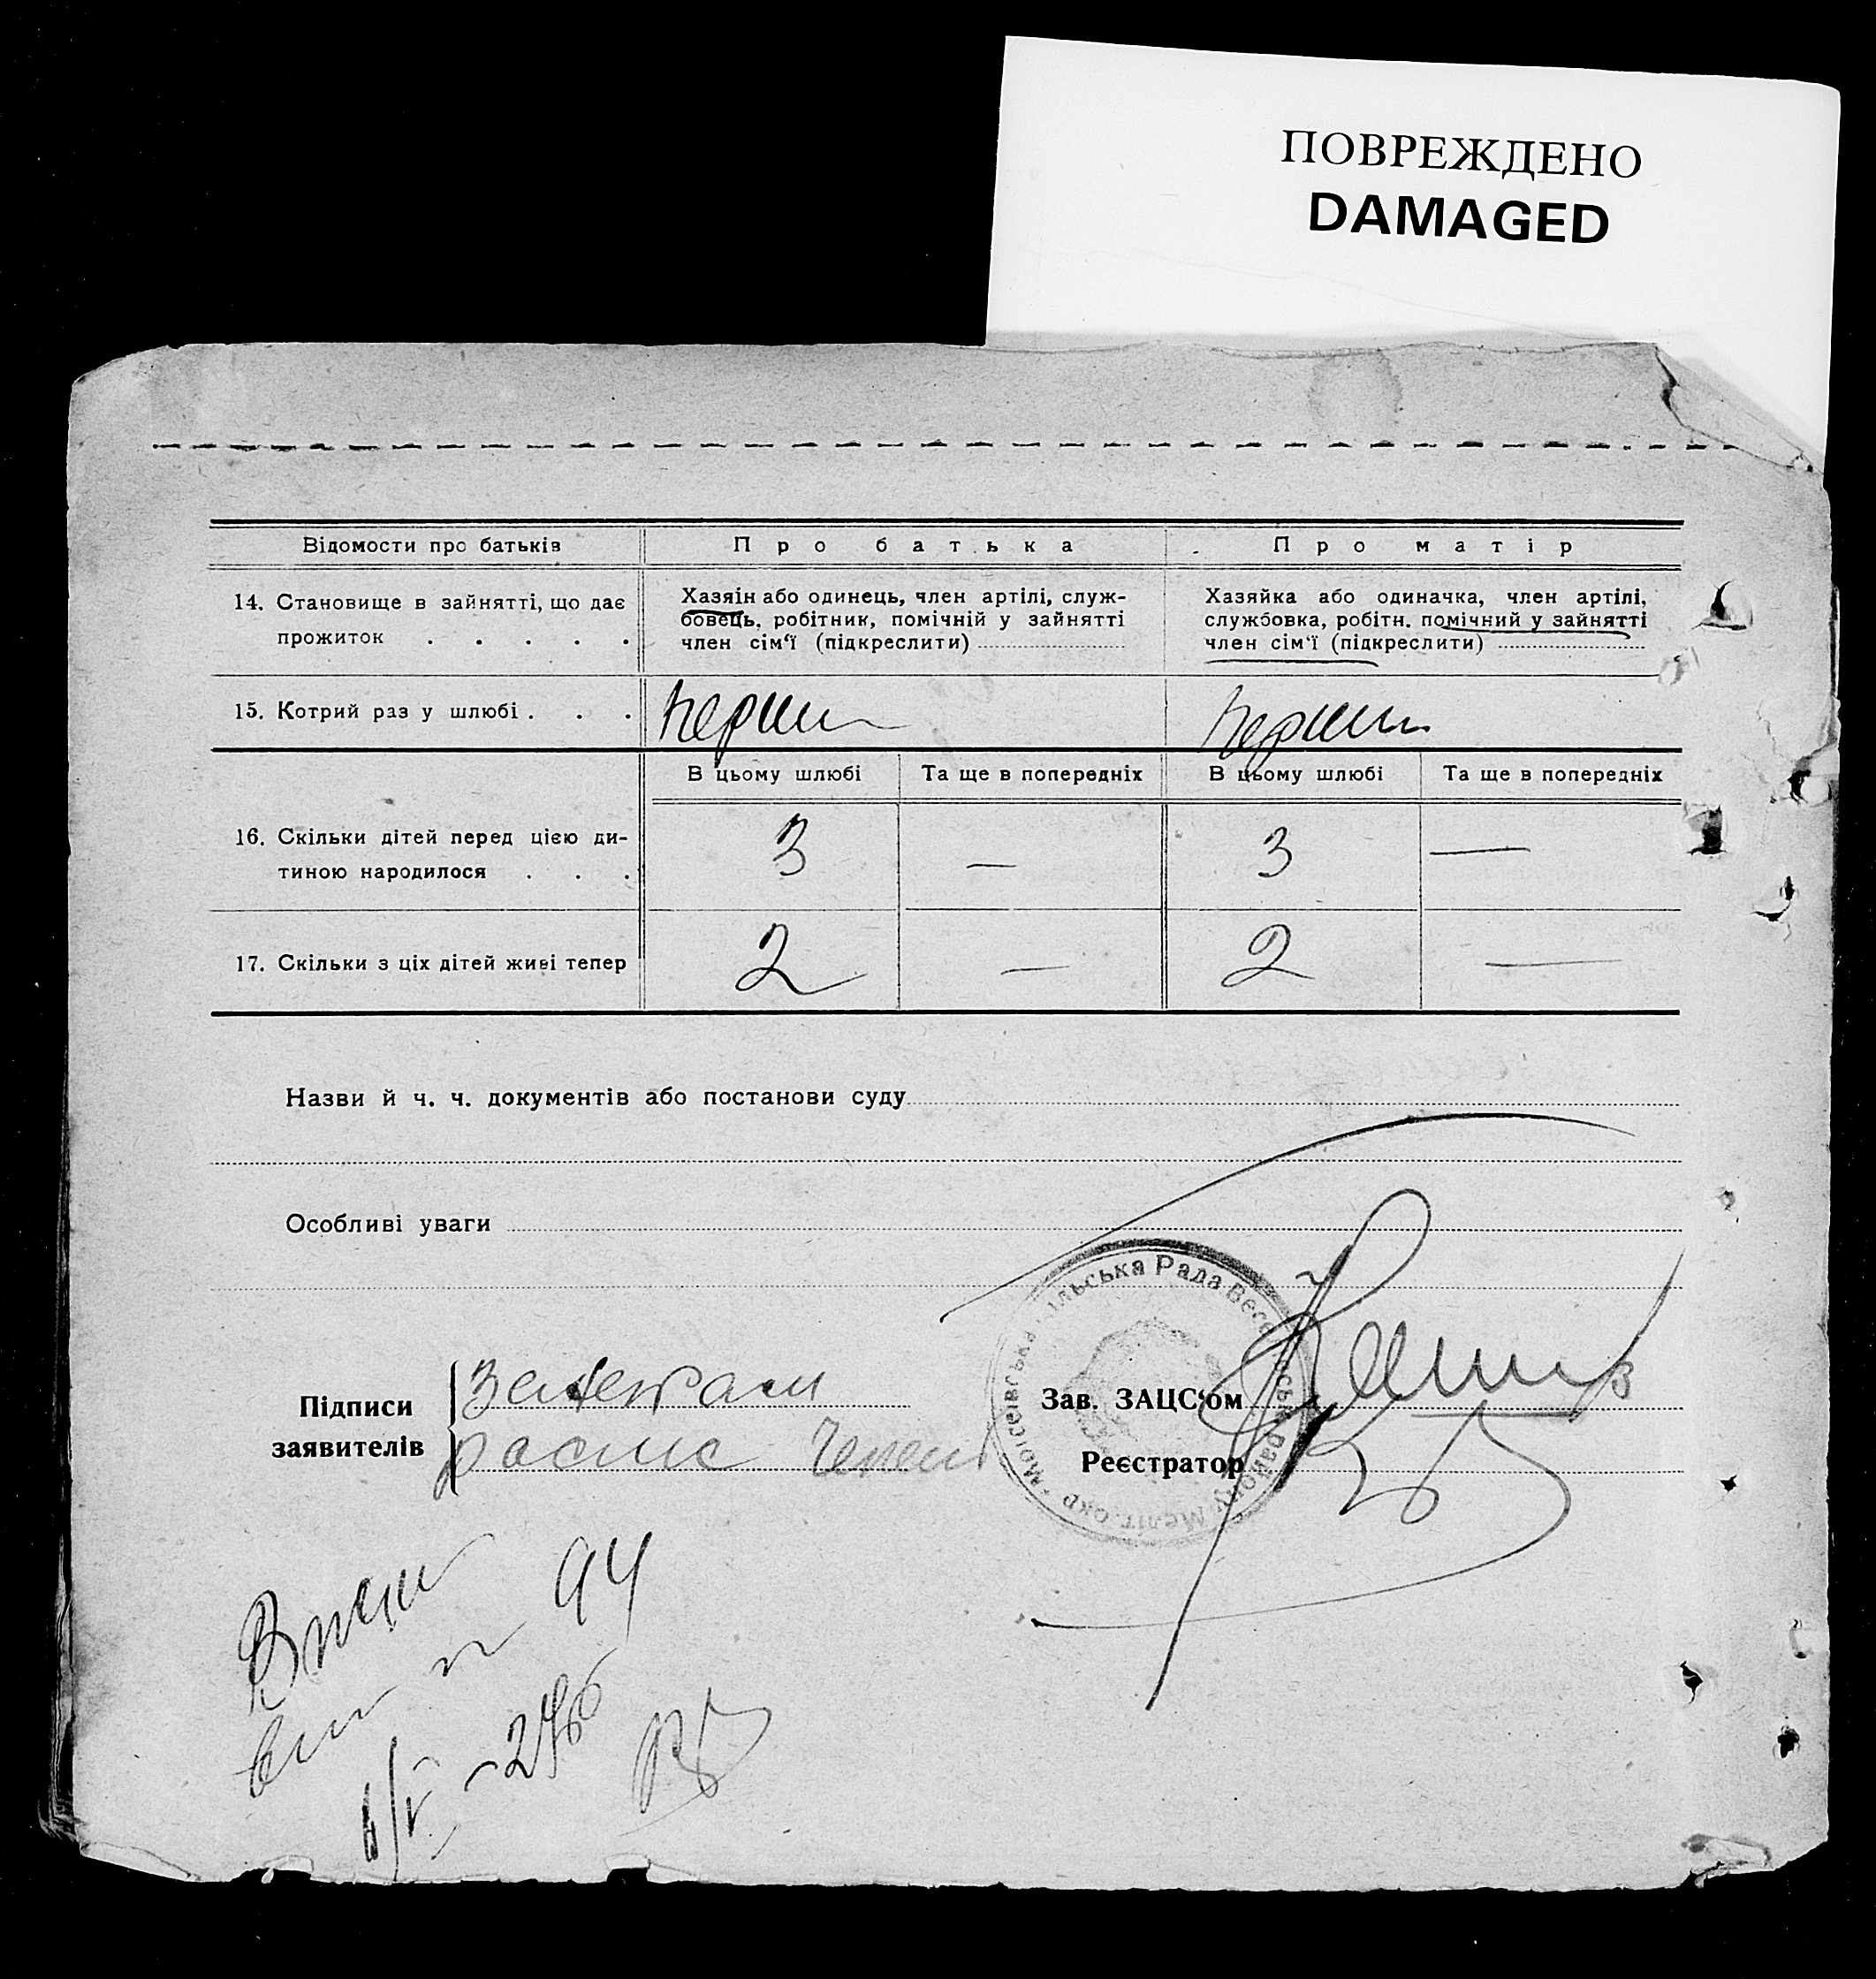 ПОВРЕЖДЕНО
DAMAGED
Відомости про батьків
Про батька
Про матір
14. Становище в зайнятті, що дає
прожиток . . . . .
Хазяїн або одинець, член артілі, служ-
бовець, робітник, помічній у зайнятті
член сім‘ї (підкреслити)
Хазяйка або одиначка, член артілі,
службовка, робітн. помічний у зайнятті
член сім‘ї (підкреслити)
15. Котрий раз у шлюбі . . .
перший
перший
В цьому шлюбі
Та ще в попередніх
В цьому шлюбі
Та ще в попередніх
16. Скільки дітей перед цією ди-
тиною народилося . . .
3 — 3 —
17. Скільки з ціх дітей живі тепер
2 — 2 —
Назви й ч. ч. документів або постанови суду
Особливі уваги
Підписи
заявителів
Зав. ЗАЦС‘ом
Реєстратор
Мойсеївська Сільська Рада Весел району Меліт. окр.
94